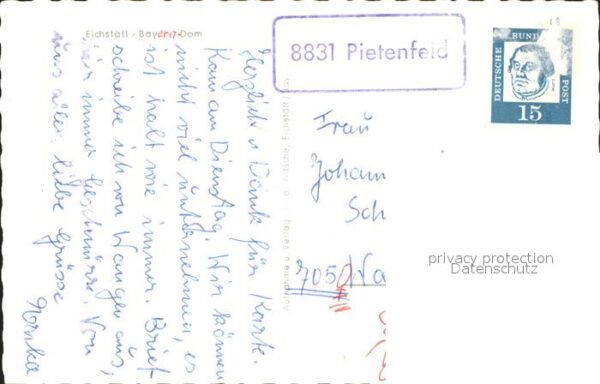 Eichstätt - Bayern - Dom
8831 Pietenfeld
DEUTSCHE
BUNDES
POST
15
Herzlich Dank für Karte.
Kam am Dienstag. Wir können
nicht viel unternehmen, es
ist halt wie immer. Brief
schreibe ich von Wangen aus,
immer Von
uns allen liebe Grüsse
Frau
Johann
Sch
7050 Wa
privacy protection
Datenschutz